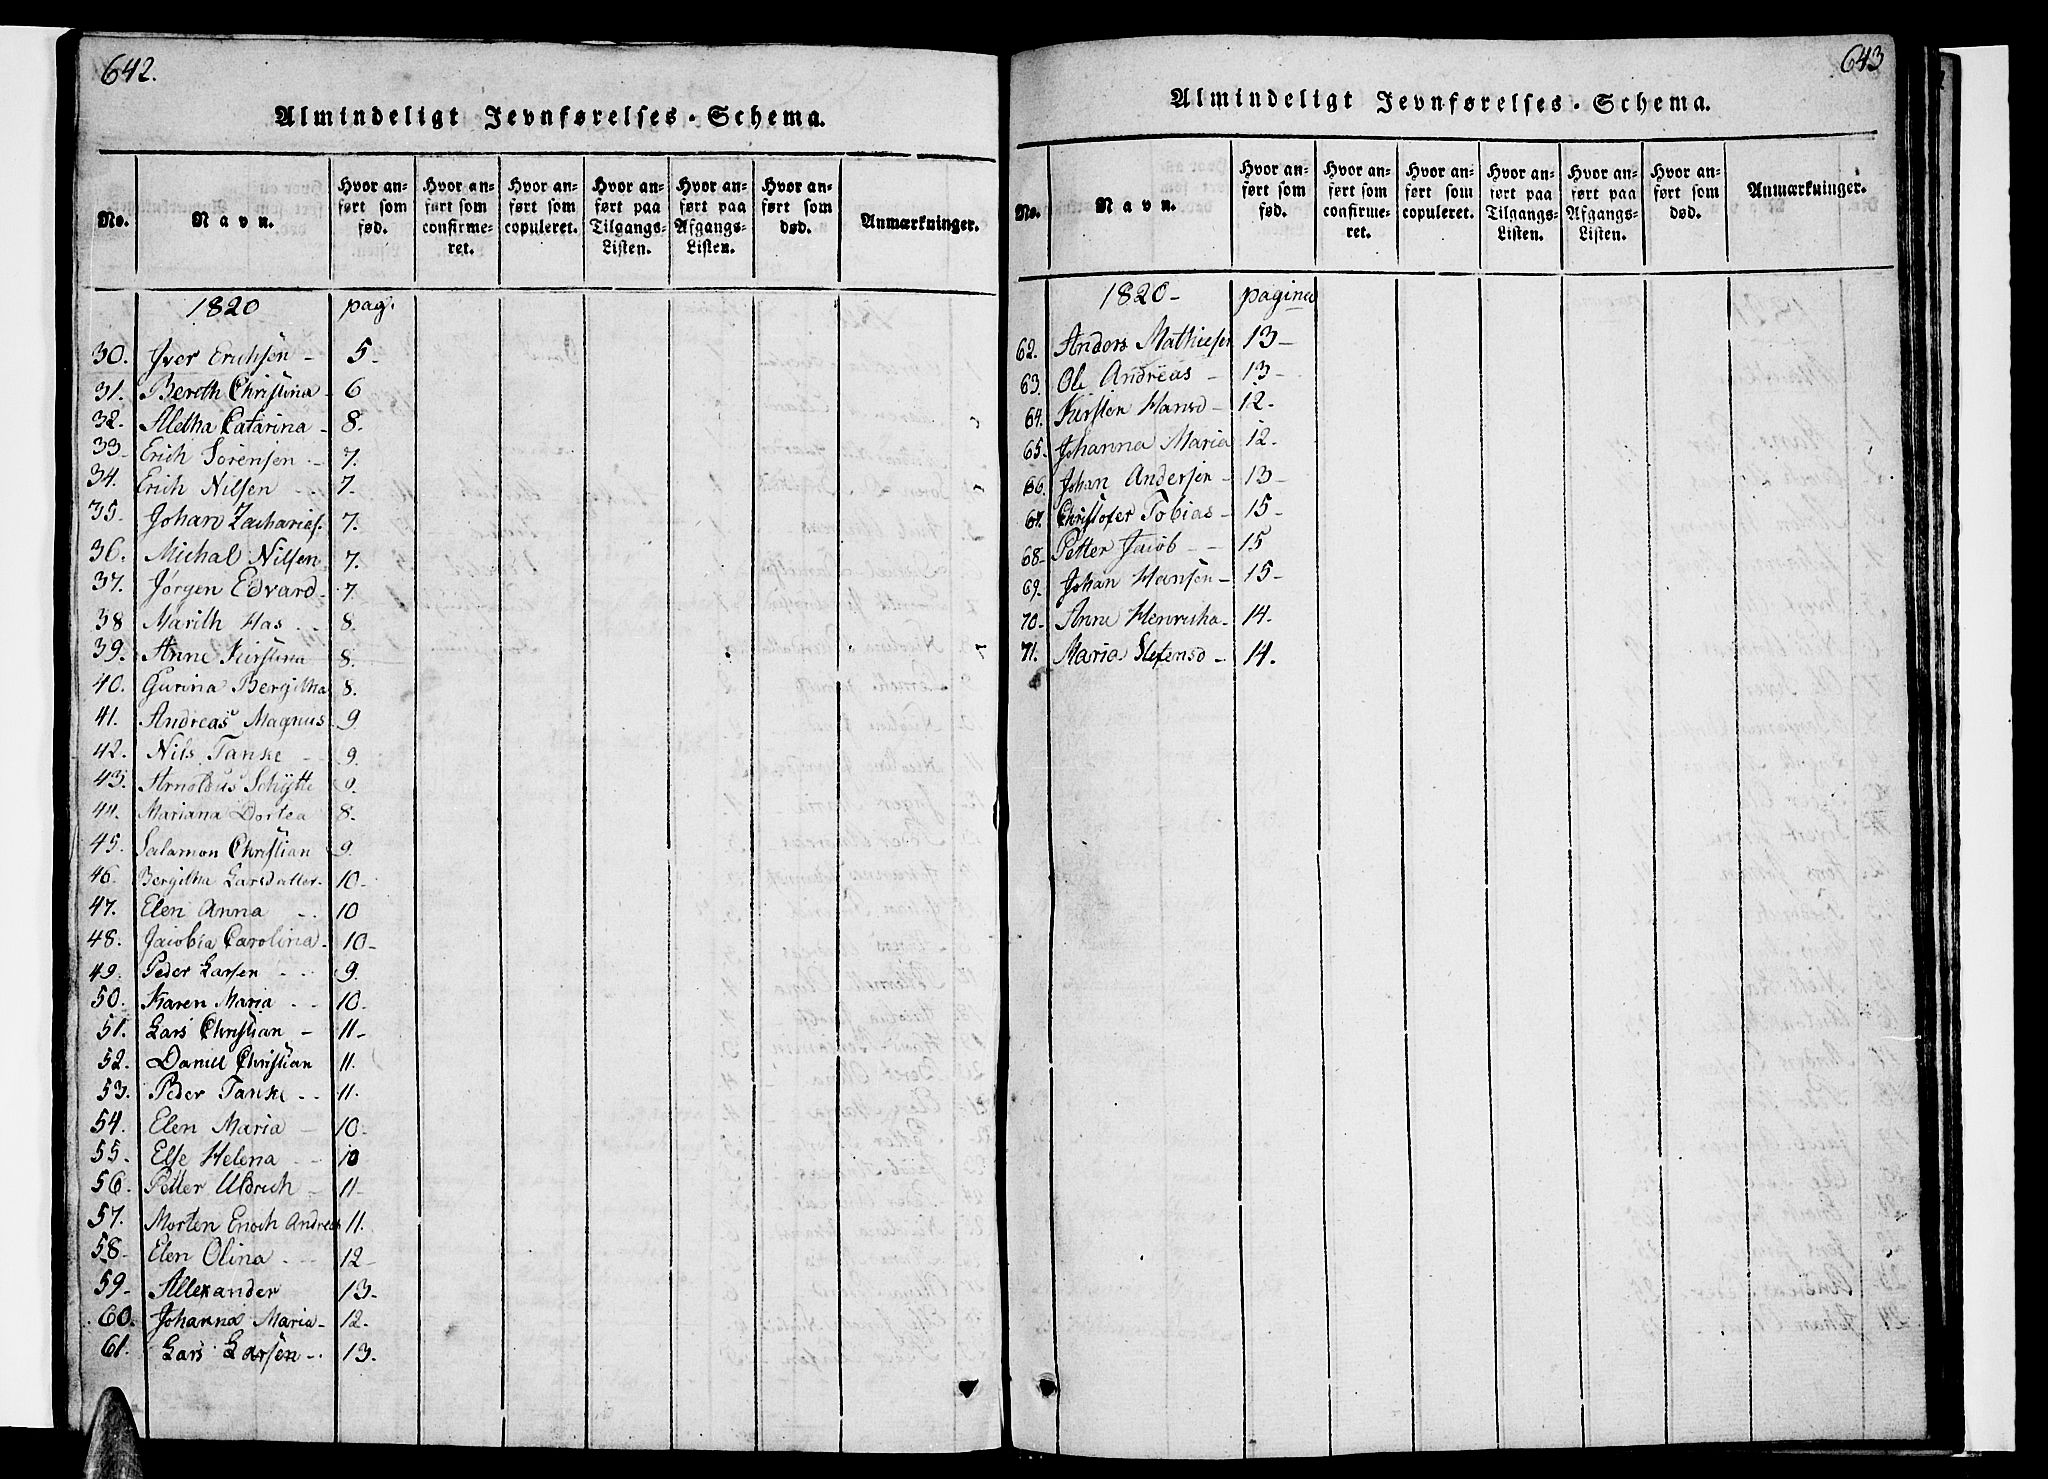 642.
Almindeligt Jevnførelses-Schema.
No. Navn. Hvor anført som fød. Hvor anført som confirmeret. Hvor anført som copuleret. Hvor anført paa Tilgangs-Listen. Hvor anført paa Afgangs-Listen. Hvor anført som død. Anmærkninger.
1820 pag:
30. Iver Erichsen - 5-
31. Bereth Christina - 6
32. Aletha Catarina - 8.
33- Erich Sörensen - 7.
34. Erich Nilsen - - 7.
35. Johan Zacharias. 7.
36. Michal Nilsen 7.
37. Jörgen Edvard - 7
38 Marith Has - - 8.
39. Anne Kirstina 8.
40. Gurina Bergitha 8.
41. Andreas Magnus 9
42. Nils Tanke - 9.
43. Arnoldus Schÿtte 9.
44. Mariana Dortea 8.
45. Salamon Christian 9.
46. Bergitha Larsdatter. 10-
47. Elen Anna - - 10
48. Jacobia Carolina - 10-
49. Peder Larsen - - 9.
50. Karen Maria - - 10.
51. Lars Christian - 11-
52. Daniel Christian 11.
53. Peder Tanke - - 11.
54. Elen Maria - 10-
55- Else Helena - - 10
56. Petter Uldrich - 11-
57. Morten Enoch Andreas 11.
58- Elen Olina - - - 12-
59- Allexander 13-
60. Johanna Maria - 12-
61. Lars Larsen - - 13.
643
Almindeligt Jevnførelses-Schema.
No. Navn. Hvor anført som fød. Hvor anført som confirmeret. Hvor anført som copuleret. Hvor anført paa Tilgangs-Listen. Hvor anført paa Afgangs-Listen. Hvor anført som død. Anmærkninger.
1820- pagina
62. Anders Mathiesen 13-
63. Ole Andreas - 13-
64. Kirsten Hansd - 12-
65. Johanna Maria 12-
66. Johan Andersen - 13-
67. Christofer Tobias - 15-
68- Petter Jacob - - 15
69. Johan Hansen - 15-
70- Anne Henricha - 14.
71. Maria Stefensd - 14.